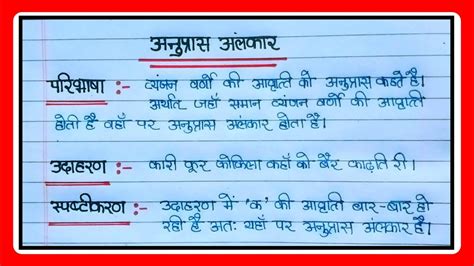 अनुप्रास अलंकार
परिभाषा :- व्यंजन वर्णों की आवृत्ती को अनुप्रास कहते है।
अर्थात जहाँ समान व्यंजन वर्णों की आवृत्ती
होती है वहाँ पर अनुप्रास अलंकार होता है।
उदाहरण :- कारी कूर कोकिला कहाँ को बैर काढ़ति री।
स्पष्टीकरण :- उदाहरण में 'क' की आवृत्ती बार-बार हो
रही है अतः यहाँ पर अनुप्रास अलंकार है।